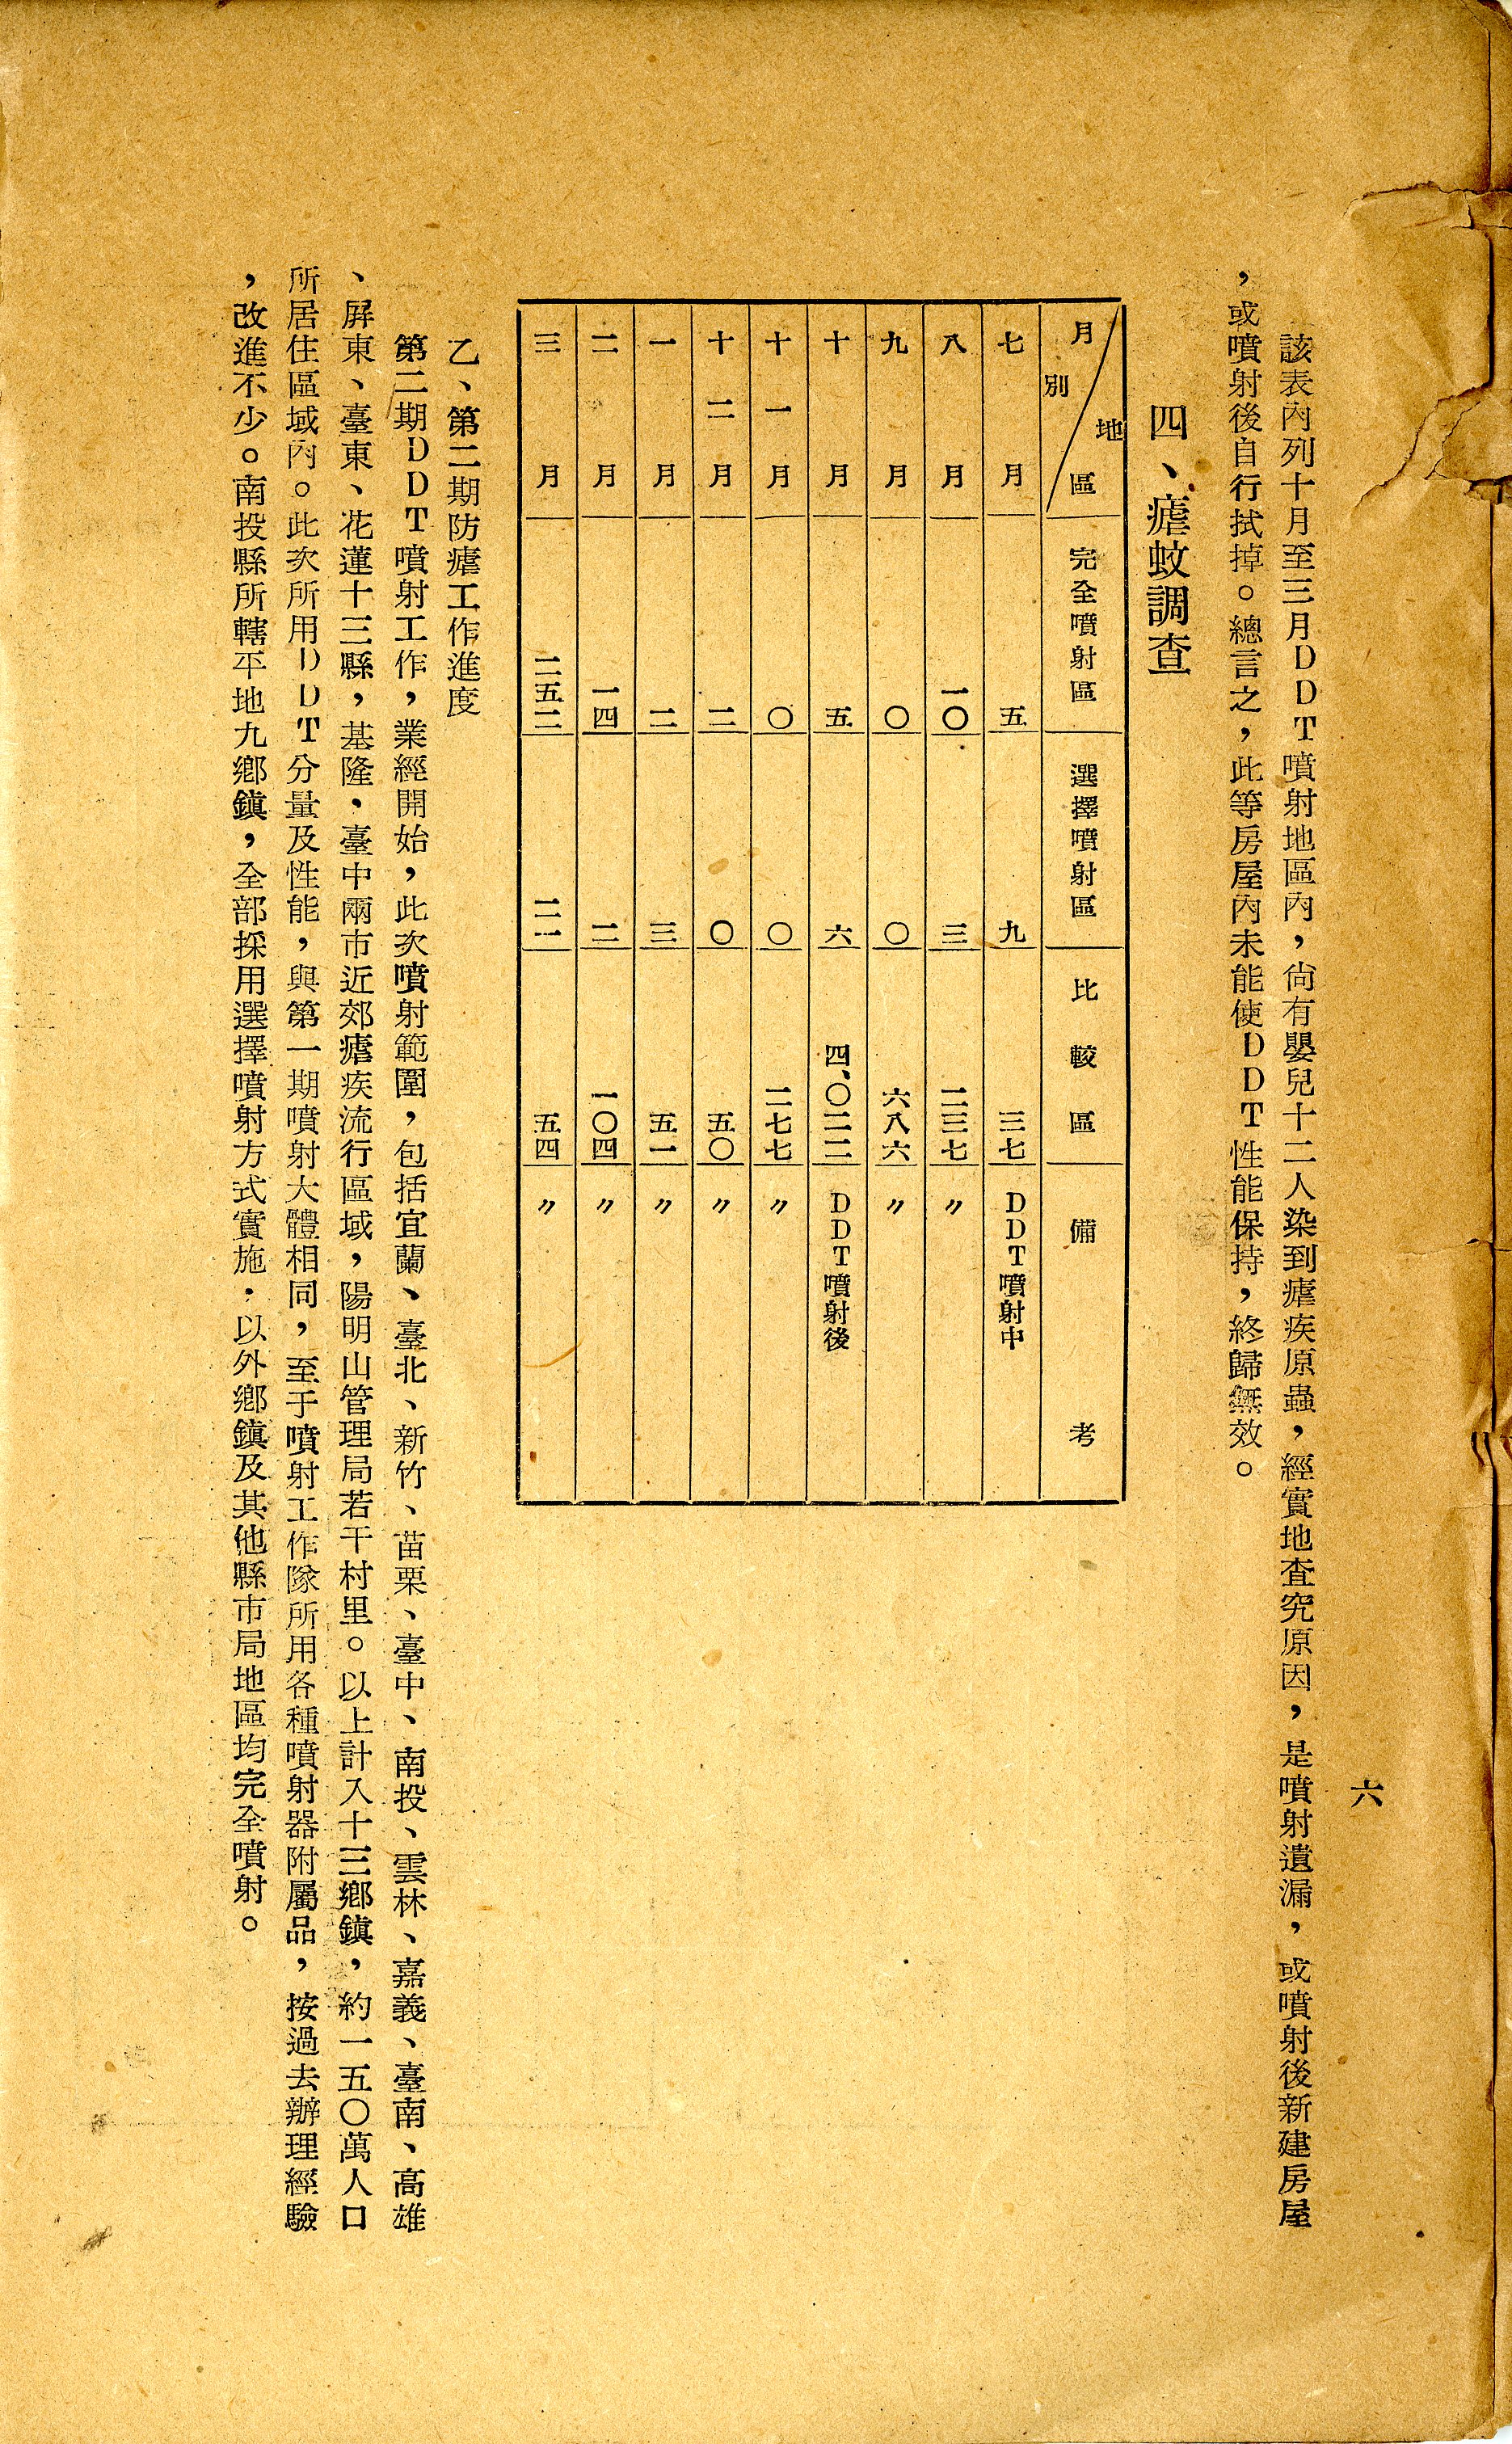 六
該表內列十月至三月DDT噴射地區內，尙有嬰兒十二人染到瘧疾原蟲，經實地查究原因，是噴射遺漏，或噴射後新建房屋
，或噴射後自行拭掉。總言之，此等房屋內未能使DDT性能保持，終歸無效。
四、瘧蚊調查
月別 地區 完全噴射區 選擇噴射區 比較區 備考
七月 五 九 三七 DDT噴射中
八月 一〇 三 二三七 〃
九月 〇 〇 六八六 〃
十月 五 六 四、〇二二 DDT噴射後
十一月 〇 〇 二七七 〃
十二月 二 〇 五〇 〃
一月 二 三 五一 〃
二月 一四 二 一〇四 〃
三月 二五二 二一 五四 〃
乙、第二期防瘧工作進度
第二期DDT噴射工作，業經開始，此次噴射範圍，包括宜蘭、臺北、新竹、苗栗、臺中、南投、雲林、嘉義、臺南、高雄
、屛東、臺東、花蓮十三縣，基隆，臺中兩市近郊瘧疾流行區域，陽明山管理局若干村里。以上計八十三鄉鎭，約一五〇萬人口
所居住區域內。此次所用DDT分量及性能，與第一期噴射大體相同，至于噴射工作隊所用各種噴射器附屬品，按過去辦理經驗
，改進不少。南投縣所轄平地九鄉鎭，全部採用選擇噴射方式實施，以外鄉鎭及其他縣市局地區均完全噴射。